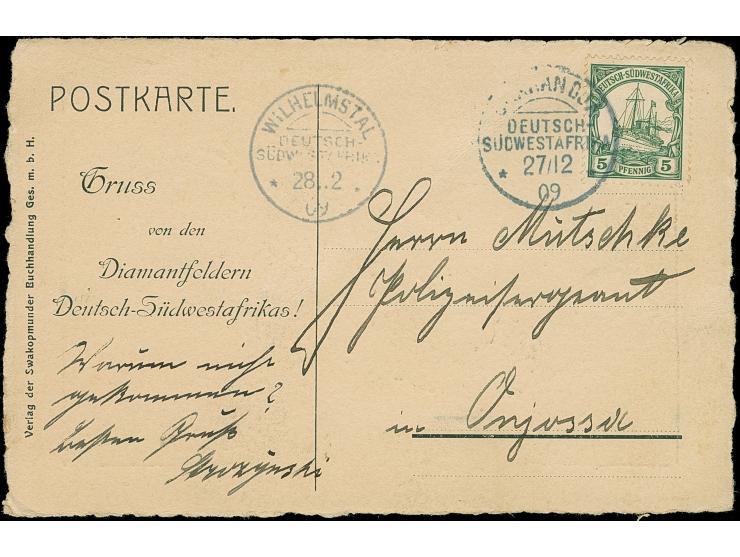 POSTKARTE.
Gruss
von den
Diamantfeldern
Deutsch-Südwestafrikas!
Verlag der Swakopmunder Buchhandlung Ges. m. b. H.
WILHELMSTAL
DEUTSCH-
SÜDWESTAFRIKA
* 28..2 .
09
DEUTSCH-
SÜDWESTAFRIKA
* 27/12 *
09
DEUTSCH-SÜDWESTAFRIKA
5 PFENNIG 5
Herrn Mutschke
Polizeisergeant
in Onjossa
Warum nicht
gekommen?
besten Gruß